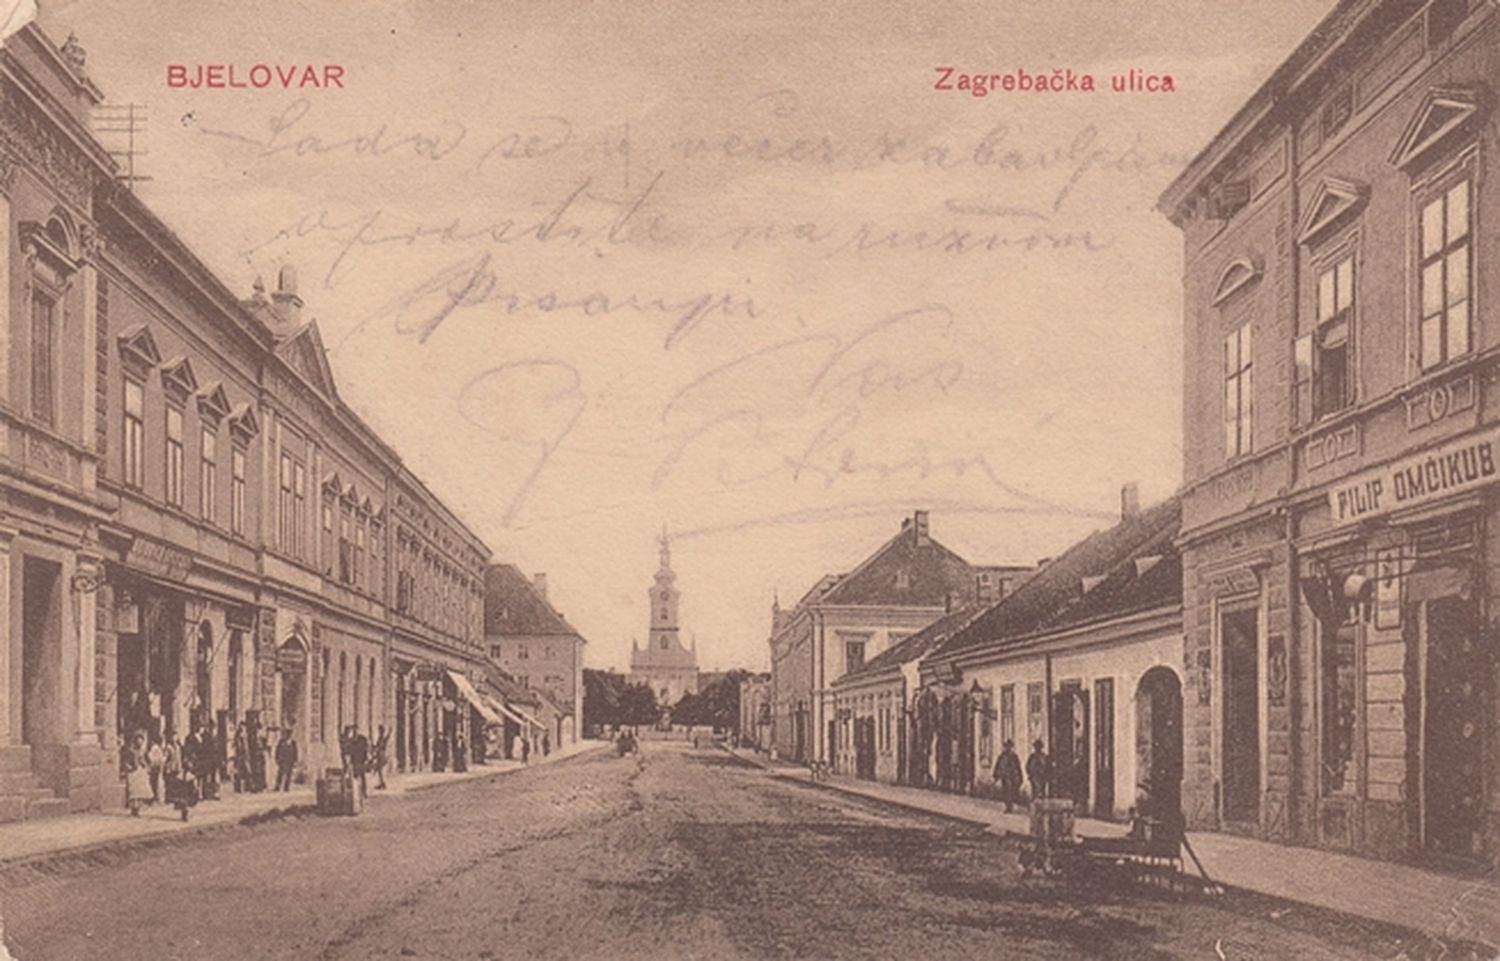 BJELOVAR
Zagrebačka ulica
Sada se u večer zabavljamo
oprostite na ružnom
Pisanju
Vas
FILIP OMČIKUB